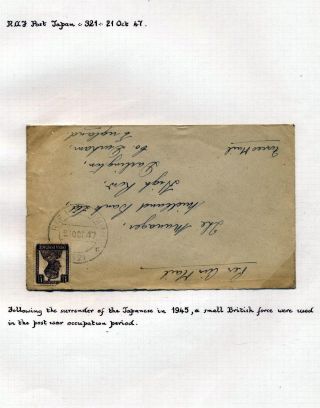 R.A.F Post Japan - 321 - 21 Oct 47.
Per Air Mail
The Manager,
Midland Bank Ltd,
High Row,
Darlington,
Co Durham,
England
Forces Mail
Following the surrender of the Japanese in 1945, a small British force were used
in the post war occupation period.